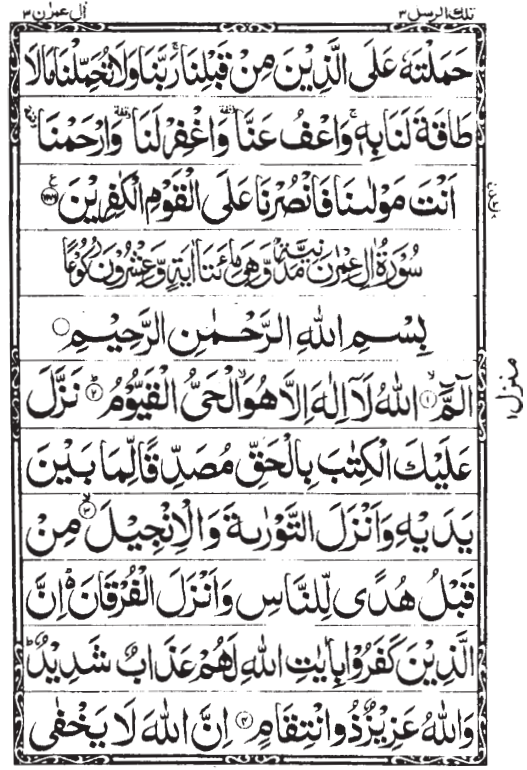 تلك الرسل ٣
اٰل عمرٰن ٣
حَمَلْتَهٗ عَلَى الَّذِيْنَ مِنْ قَبْلِنَا ۚ رَبَّنَا وَلَا تُحَمِّلْنَا مَا لَا
طَاقَةَ لَنَا بِهٖ ۚ وَاعْفُ عَنَّا ۥ وَاغْفِرْ لَنَا ۥ وَارْحَمْنَا ۥ
اَنْتَ مَوْلٰىنَا فَانْصُرْنَا عَلَى الْقَوْمِ الْكٰفِرِيْنَ
سُوْرَةُ اٰلِ عِمْرٰنَ مَدَنِيَّةٌ وَّهِيَ مِائَتَا اٰيَةٍ وَّعِشْرُوْنَ رُكُوْعًا
بِسْمِ اللّٰهِ الرَّحْمٰنِ الرَّحِيْمِ
الٓمَّٓ ۙ﴿١﴾ اللّٰهُ لَآ اِلٰهَ اِلَّا هُوَ ۙ الْحَيُّ الْقَيُّوْمُ ؕ﴿٢﴾ نَزَّلَ
عَلَيْكَ الْكِتٰبَ بِالْحَقِّ مُصَدِّقًا لِّمَا بَيْنَ
يَدَيْهِ وَاَنْزَلَ التَّوْرٰىةَ وَالْاِنْجِيْلَ ۙ﴿٣﴾ مِنْ
قَبْلُ هُدًى لِّلنَّاسِ وَاَنْزَلَ الْفُرْقَانَ ؕ اِنَّ
الَّذِيْنَ كَفَرُوْا بِاٰيٰتِ اللّٰهِ لَهُمْ عَذَابٌ شَدِيْدٌ ؕ
وَاللّٰهُ عَزِيْزٌ ذُو انْتِقَامٍ ﴿٤﴾ اِنَّ اللّٰهَ لَا يَخْفٰى
منزل ١